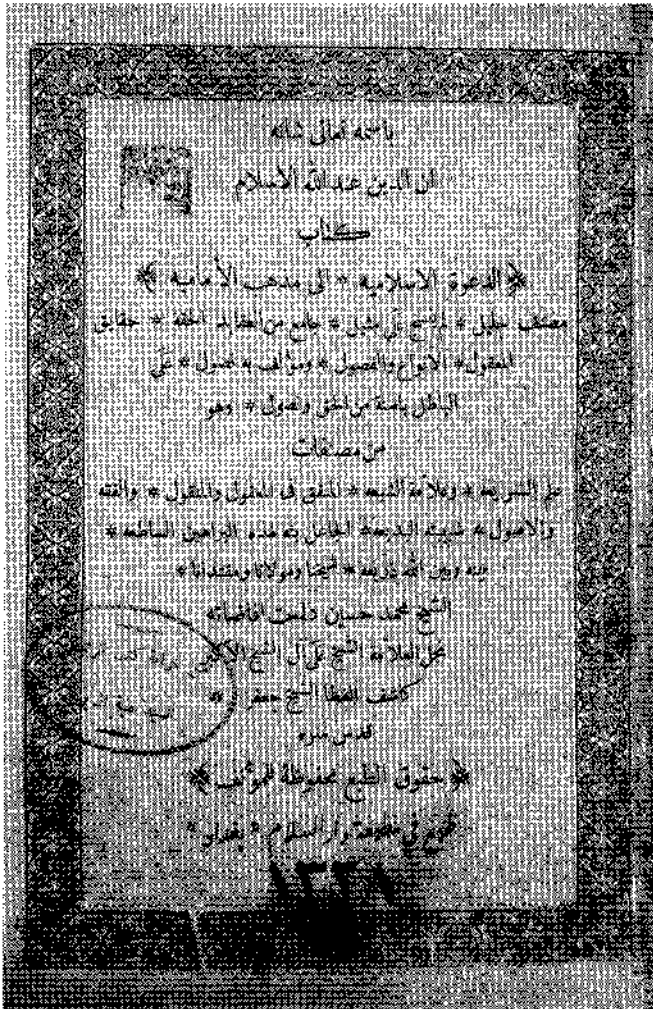 باسمه تعالى شانه
ان الدين عند الله الاسلام
كتاب
﴿ الدعوة الاسلامية * الى مذهب الأمامية ﴾
مصنف جليل * لم ينسج على مثيل * جامع من العقائد الحقه * حقايق
المعقول * الانواع والفصول * ومؤلف به يصول * على
الباطل باسنة من الحق ونصول * وهو
من مصنفات
علم الشريعه * وعلامة الشيعه * المتقن في المعقول والمنقول * والفقه
والاصول * الجاعل هذه البراهين الساطعه *
بينه وبين الله ذريعه * شيخنا ومولانا ومقتدانا *
الشيخ محمد حسين دامت افاضاته
نجل العلامه الشيخ علي آل الشيخ الأكبر
كاشف الغطا الشيخ جعفر
قدس سره
﴿ حقوق الطبع محفوظة للمؤلف ﴾
طبع في مطبعة دار السلام * بغداد *